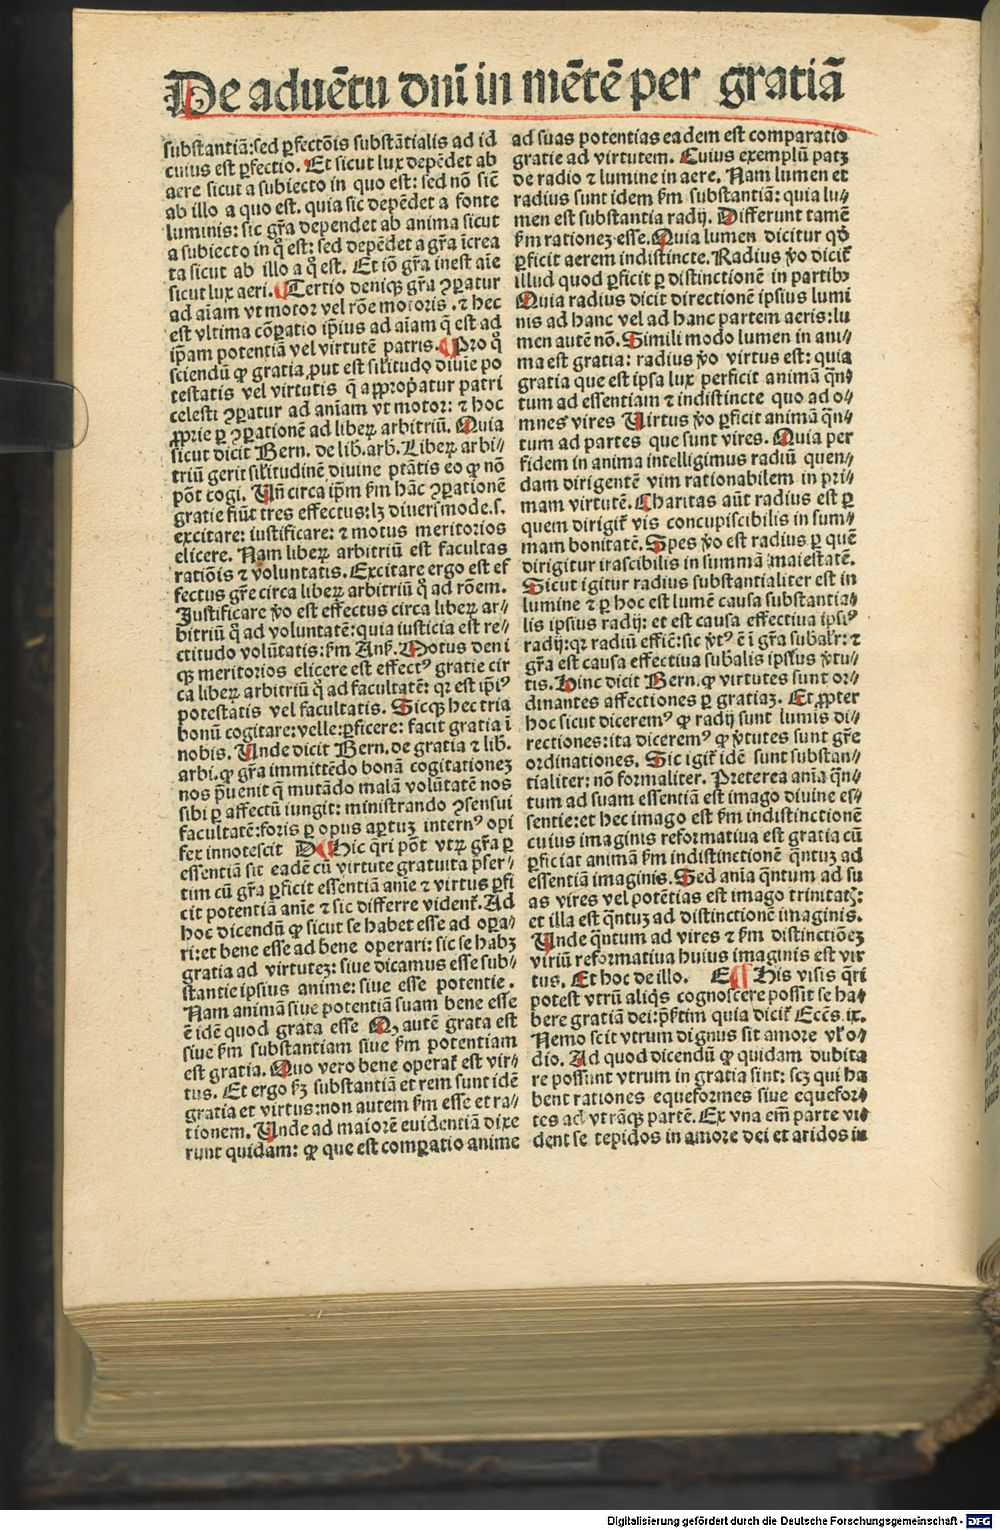 De aduētu dnī in mētē per gratiā
substantiā: sed ꝑfectōis substātialis ad id
cuius est ꝑfectio. Et sicut lux depēdet ab
aere sicut a subiecto in quo est: sed nō siē
ab illo a quo est. quia sic depēdet a fonte
luminis: sic gr̄a dependet ab anima sicut
a subiecto in q̊ est: sed depēdet a gr̄a īcrea
ta sicut ab illo a q̊ est. Et iō gr̄a inest aīe
sicut lux aeri. Tertio deniqꝫ gr̄a ꝯꝑatur
ad aīam vt motor vel rōe motoris. ⁊ hec
est vltima cōꝑatio ip̄ius ad aīam q̄ est ad
ip̄am potentiā vel virtutē patris. Pro q̊
sciendū ꝙ gratia ꝓut est siĺitudo diuīe po
testatis vel virtutis q̄ aꝓpropatur patri
celesti ꝯꝑatur ad anīam vt motor: ⁊ hoc
ꝓprie ꝑ ꝯꝑationē ad liberꝝ arbitriū. Quia
sicut dicit Bern. de lib. arb. Liberꝝ arbi-
triū gerit siĺitudinē diuine ptātis eo ꝙ nō
pōt cogi. Vn̄ circa ip̄m ẜm hāc ꝯꝑationē
gratie fiūt tres effectus: lꝫ diuersimode. ſ.
excitare: iustificare: ⁊ motus meritorios
elicere. Nam liberꝝ arbitriū est facultas
ratiōis ⁊ voluntatis. Excitare ergo est ef
fectus gr̄e circa liberꝝ arbitriū q̊ ad rōem.
Justificare ꝟo est effectus circa liberꝝ ar-
bitriū q̊ ad voluntatē: quia iusticia est re-
ctitudo volūtatis: ẜm Anẜ. Motus deni
qꝫ meritorios elicere est effectꝰ gratie cir
ca liberꝝ arbitriū q̊ ad facultatē: qꝛ est ip̄iꝰ
potestatis vel facultatis. Sicqꝫ hec tria
bonū cogitare: velle: ꝑficere: facit gratia ī
nobis. Vnde dicit Bern. de gratia ⁊ lib.
arbi. ꝙ gr̄a immittēdo bonā cogitationeꝫ
nos p̄uenit q̄ mutādo malā volūtatē nos
sibi ꝑ affectū iungit: ministrando ꝯsensui
facultatē: foris ꝑ opus aꝑtuꝫ internꝰ opi
fex innotescit D Hic q̄ri pōt vtꝝ gr̄a ꝑ
essentiā sit eadē cū virtute gratuita p̄ser-
tim cū gr̄a ꝑficit essentiā anīe ⁊ virtus ꝑfi
cit potentiā anīe ⁊ sic differre vident̄. Ad
hoc dicendū ꝙ sicut se habet esse ad oꝑa-
ri: et bene esse ad bene operari: sic se habꝫ
gratia ad virtuteꝫ: siue dicamus esse sub-
stantie ipsius anime: siue esse potentie.
Nam animā siue potentiā suam bene esse
ē idē quod grata esse autē grata est
siue ẜm substantiam siue ẜm potentiam
est gratia. Quo vero bene operat̄ est vir-
tus. Et ergo ẜꝫ substantiā et rem sunt idē
gratia et virtus: non autem ẜm esse et ra-
tionem. Vnde ad maiorē euidentiā dixe
runt quidam: ꝙ que est comꝑatio anime
ad suas potentias eadem est comparatio
gratie ad virtutem. Cuius exemplū patꝫ
de radio ⁊ lumine in aere. Nam lumen et
radius sunt idem ẜm substantiā: quia lu-
men est substantia radij. Differunt tamē
ẜm rationeꝫ esse. Quia lumen dicitur qđ
ꝑficit aerem indistincte. Radius ꝟo dicit̄
illud quod ꝑficit ꝑ distinctionē in partibꝫ
Quia radius dicit directionē ipsius lumi
nis ad hanc vel ad hanc partem aeris: lu
men autē nō. Simili modo lumen in ani-
ma est gratia: radius ꝟo virtus est: quia
gratia que est ipsa lux perficit animā q̄n-
tum ad essentiam ⁊ indistincte quo ad o-
mnes vires Virtus ꝟo ꝑficit animā q̄n-
tum ad partes que sunt vires. Quia per
fidem in anima intelligimus radiū quen-
dam dirigentē vim rationabilem in pri-
mam virtutē. Charitas aūt radius est ꝑ
quem dirigit̄ vis concupiscibilis in sum-
mam bonitatē. Spes ꝟo est radius ꝑ quē
dirigitur irascibilis in summā maiestatē.
Sicut igitur radius substantialiter est in
lumine ⁊ ꝑ hoc est lumē causa substantia-
lis ipsius radij: et est causa effectiua ipsiꝰ
radij: qꝛ radiū efficē: sic ꝟtꝰ ē ī gr̄a subalr̄: ⁊
gr̄a est causa effectiua subalis ipsius ꝟtu-
tis. Hinc dicit Bern. ꝙ virtutes sunt or-
dinantes affectiones ꝑ gratiaꝫ. Et ꝓpter
hoc sicut diceremꝰ ꝙ radij sunt lumis di-
rectiones: ita diceremꝰ ꝙ ꝟtutes sunt gr̄e
ordinationes. Sic igit̄ idē sunt substan-
tialiter: nō formaliter. Preterea anīa q̄n-
tum ad suam essentiā est imago diuine es-
sentie: et hec imago est ẜm indistinctionē
cuius imaginis reformatiua est gratia cū
ꝑficiat animā ẜm indistinctionē q̄ntuꝫ ad
essentiā imaginis. Sed anīa q̄ntum ad su
as vires vel potētias est imago trinitatꝭ:
et illa est q̄ntuꝫ ad distinctionē imaginis.
Vnde q̄ntum ad vires ⁊ ẜm distinctiōeꝫ
viriū reformatiua huius imaginis est vir
tus. Et hoc de illo. E His visis q̄ri
potest vtrū aliqs cognoscere possit se ha-
bere gratiā dei: p̄ẜtim quia dicit̄ Ecēs. ix.
Nemo scit vtrum dignus sit amore vĺ o-
dio. Ad quod dicendū ꝙ quidam dubita
re possunt vtrum in gratia sint: scꝫ qui ha
bent rationes equeformes siue equefor-
tes ad vtrāqꝫ partē. Ex vna em̄ parte vi-
dent se tepidos in amore dei et aridos in
Digitalisierung gefördert durch die Deutsche Forschungsgemeinschaft - DFG